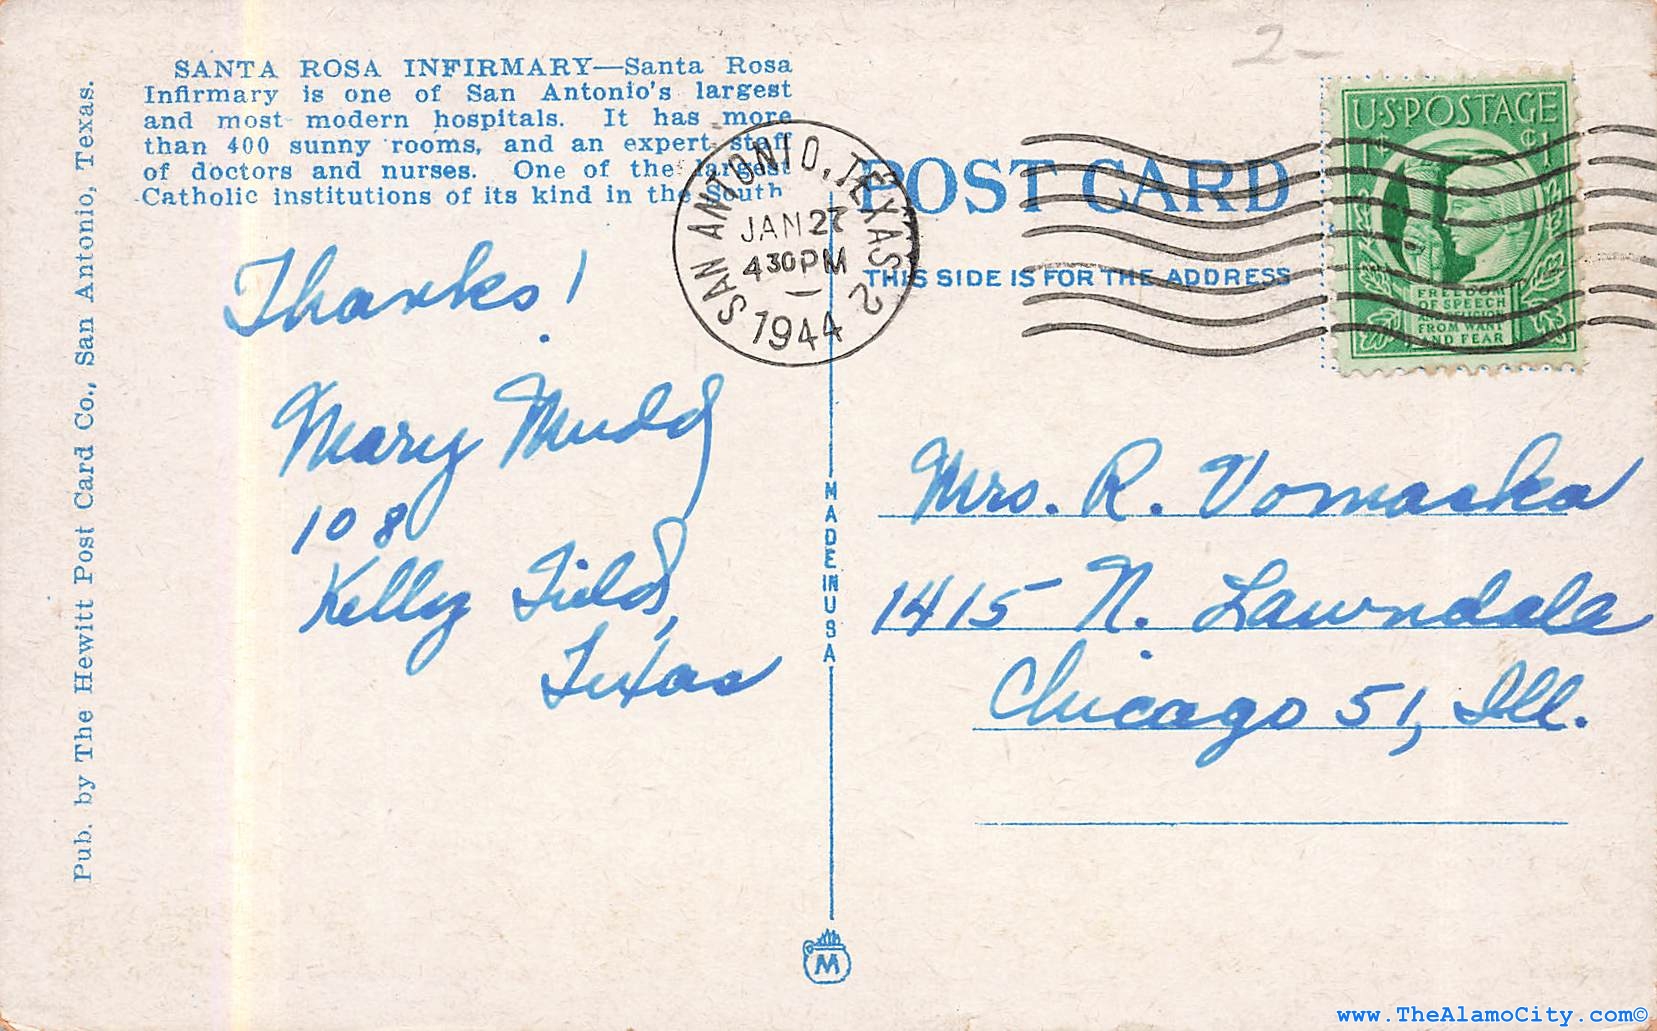 SANTA ROSA INFIRMARY—Santa Rosa
Infirmary is one of San Antonio's largest
and most modern hospitals. It has more
than 400 sunny rooms, and an expert staff
of doctors and nurses. One of the largest
Catholic institutions of its kind in the South
Pub. by The Hewitt Post Card Co., San Antonio, Texas.
Thanks!
Mary Mudd
108
Kelly Field,
Texas
SAN ANTONIO, TEXAS 2
JAN 27
4 30 PM
1944
POST CARD
THIS SIDE IS FOR THE ADDRESS
2-
U·S·POSTAGE
1¢ ¢1
FREEDOM
OF SPEECH
AND RELIGION
FROM WANT
AND FEAR
MADE IN USA
Mrs. R. Vomaska
1415 N. Lawndale
Chicago 51, Ill.
M
www.TheAlamoCity.com©